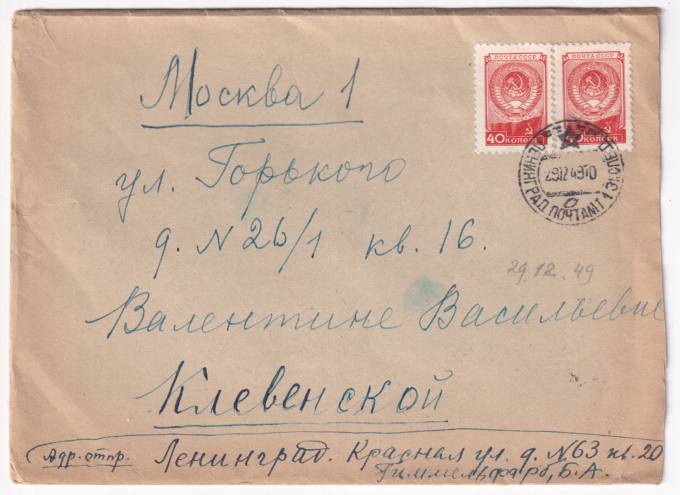 ПОЧТА СССР ПОЧТА СССР
40 КОПЕЕК 40 КОПЕЕК
Москва 1
ул. Горького
д. N 26/1 кв. 16.
29.12.49
Валентине Васильевне
Клевенской
Адр. отпр. Ленинград. Красная ул. д. N63 кв. 20
Гиммельфарб, Б. А.
ПОЧТАМТ